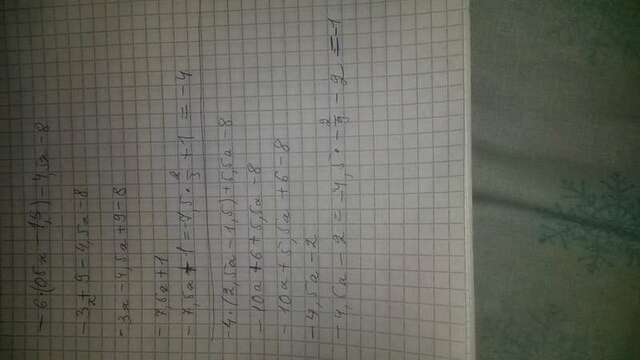 - 6·(0,5x - 1,5) - 4,5x - 8
- 3x + 9 - 4,5x - 8
- 3x - 4,5x + 9 - 8
- 7,5x + 1
- 7,5x + 1 = -7,5 · 2/3 + 1 = -4
-4·(2,5a - 1,5) + 5,5a - 8
- 10a + 6 + 5,5a - 8
- 10a + 5,5a + 6 - 8
- 4,5a - 2
- 4,5a - 2 = -4,5 · - 2/9 - 2 = -1